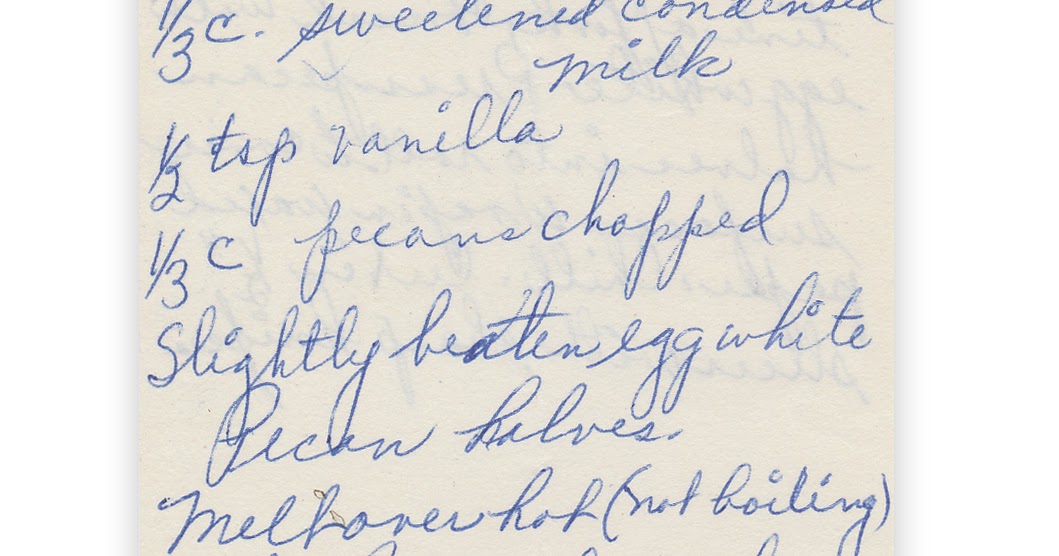 1/3 c. sweetened condensed
milk
1/2 tsp vanilla
1/3 c pecans chopped
Slightly beaten egg white
Pecan halves.
Melt over hot (not boiling)